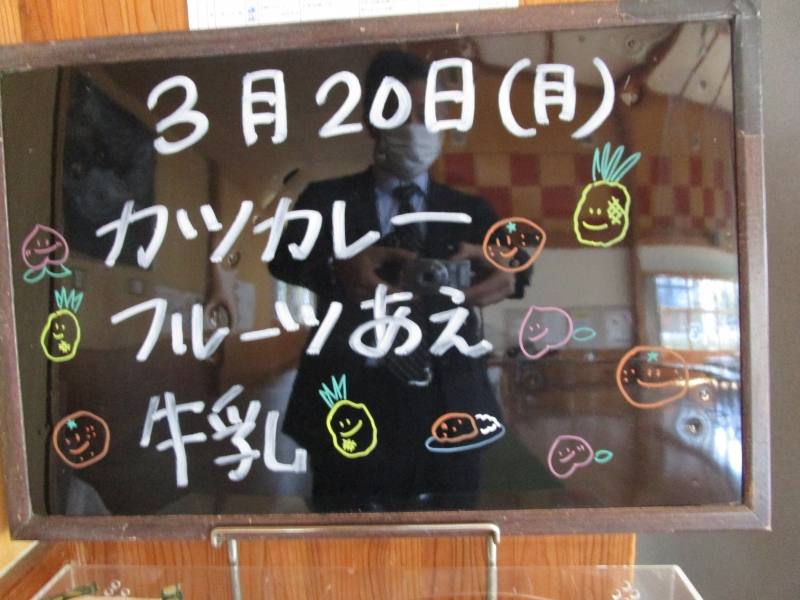 3月20日(月)
カツカレー
フルーツあえ
牛乳